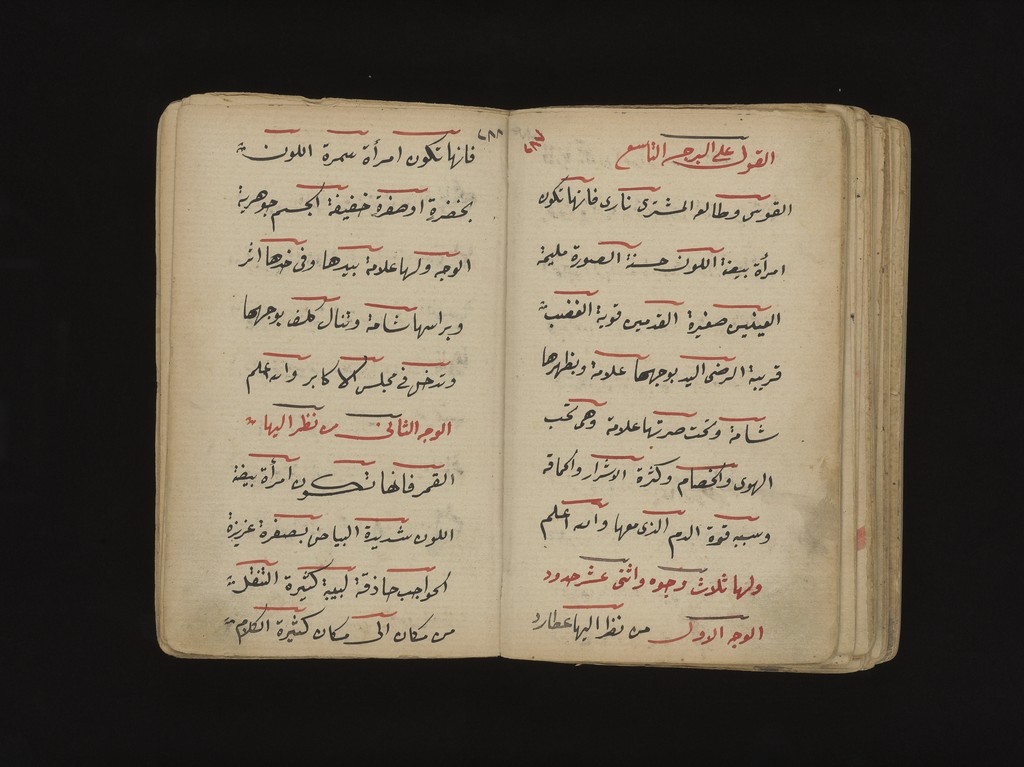 ٢٨٧
القول على البرج التاسع
القوس وطالعه المشترى نارى فانها تكون
امرأة بيضة اللون حسنة الصورة مليحة
العينين صغيرة القدمين قوية الغضب
قريبة الرضى اليد بوجهها علامة وبظهرها
شامة وتحت صرتها علامة وهى تحب
الهوى والخصام وكثرة الاشرار والحماقة
وسببه قوة الدم الذى معها والله اعلم
ولها ثلاث وجوه واثنى عشر حدود
الوجه الاول من نظر اليها عطارد
٢٨٨
فانها تكون امرأة سمرة اللون
بخضرة او صفرة خفيفة الجسم جوهرية
الوجه ولها علامة بيدها وفى خدها اثر
وبراسها شامة وتنال كلف بوجهها
وتدخل فى مجلس الاكابر والله اعلم
الوجه الثانى من نظر اليها
القمر فانها تكون امرأة بيضة
اللون شديدة البياض بصفرة عزيزة
الحواجب حاذقة لبيبة كثيرة التنقل
من مكان الى مكان كثيرة الكلام